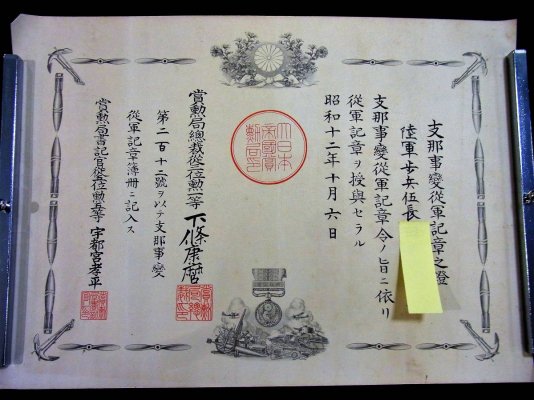 支那事變從軍記章之證
陸軍歩兵伍長
支那事變從軍記章令ノ旨ニ依リ
從軍記章ヲ授與セラル
昭和十二年十月六日
大日本
帝國賞
勲局印
賞勲局總裁從三位勲一等 下條康麿
第二百十二號ヲ以テ支那事變
從軍記章簿冊ニ記入ス
賞勲局書記官從五位勲五等 宇都宮孝平